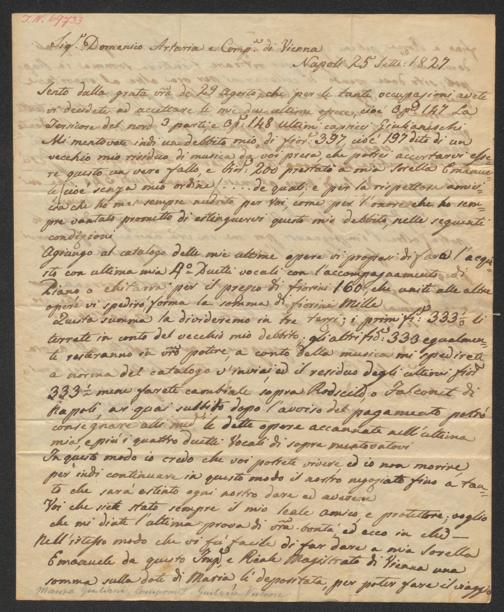 J.N. 69733
Sigr. Domenico Artaria e Compi. di Vienna
Napoli 25 Sette. 1827
Sento dalla grata vra de 29 agosto, che per le tante occupazioni avete
vi decidete ad accettare le mie due ultime opere, cioè Opa. 147 La
Tersicore del nord 3 parti e Op. 148 ultimi capricci Giulianeschi
Mi mentovate indi un debito mio di fior: 397, cioè 197 ditē di un
vecchio mio residuo di musica da voi presa, che potrei accertarvi esse
re questo un vero fallo, e fior: 200 prestato a mia Sorella Emanue
le (cioè senza mio ordine) de quali, e per la rispettosa amici
zia che ho mai sempre nudrito per Voi, come per l'onore che ho sem
pre vantato prometto di estinguervi questo mio debito, nelle seguenti
condizioni
Agiungo al catalogo delle mie ultime opere vi proposi di fare l'acqui
sto con ultima mia 4o. Duetti vocali con l'accompagnamento di
Piano o chitarra per il prezzo di fiorini 160, che uniti alle altre
opere vi spedirò forma la somma di fiorini Mille
Questa somma la divideremo in tre terzi; i primi fi. 333⅓ li
terrete in conto del vecchio mio debito: gli altri fi. 333 egualmen
te resteranno in vro potere, a conto della musica mi spedirete
a norma del catalogo v'inviai ed il residuo degli ultimi fior
333⅓ mene farete cambiale sopra Rodscild, o Falconet di
Napoli, a quai subbito dopo l'avviso del pagamento potrò
consegnare alli medi. le dette opere accennate nell'ultima
mia, e più i quattro duetti Vocali di sopra mentovatovi
In questo modo io credo che voi potrete vivere ed io non morire
per indi continuare in questo modo il nostro negoziato fino a tan
to che sarà estinto ogni nostro dare ed avere
Voi che siete stato sempre il mio leale amico, e protettore, voglio
che mi diate l'ultima prova di vra bontà ed ecco in che
Nell'istesso modo che vi fù facile di far dare a mia Sorella
Emanuele da questo Imp. e Reale Magistrato di Vienna una
somma sulla dote di Maria, li depositata, per poter fare il viaggio
Mauro Giuliani, Componist, Guitarre